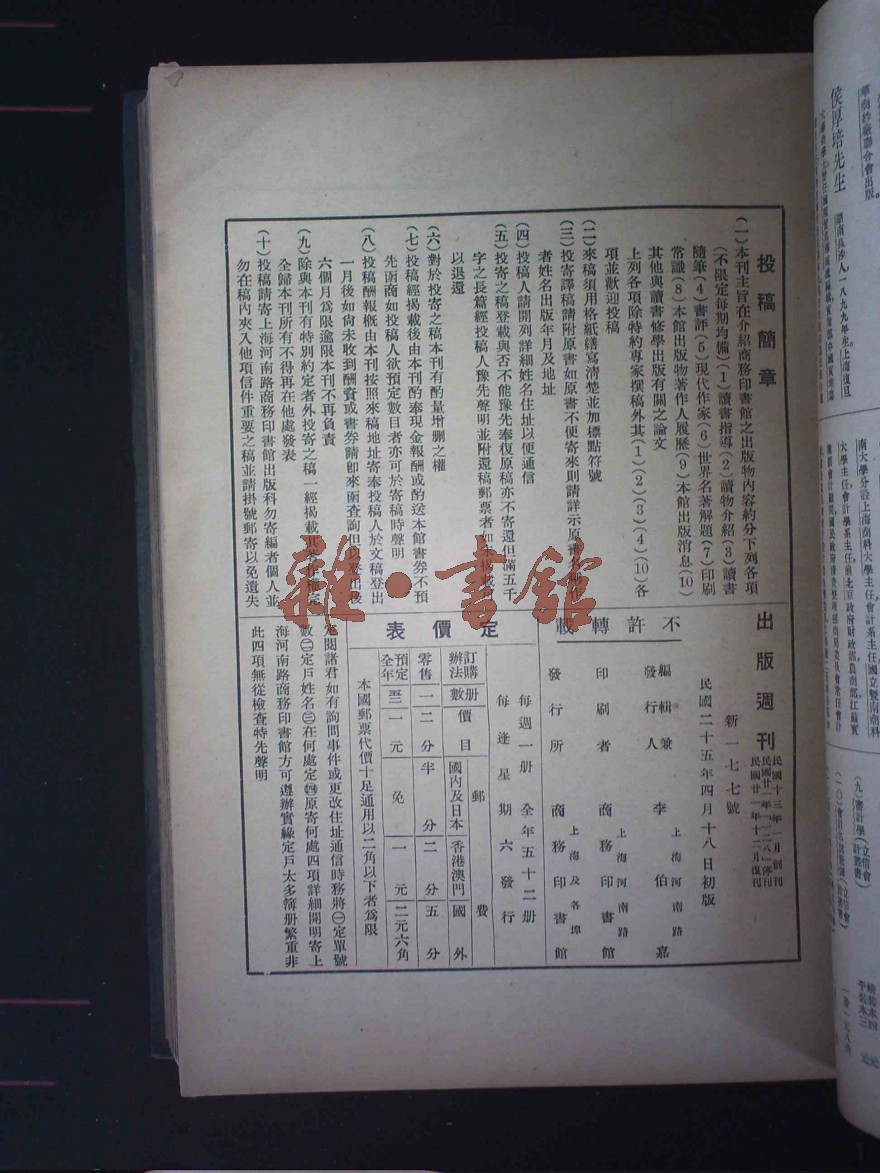 投稿簡章
(一)本刊主旨在介紹商務印書館之出版物內容約分下列各項
(不限定每期均備)(1)讀書指導(2)讀物介紹(3)讀書
隨筆(4)書評(5)現代作家(6)世界名著解題(7)印刷
常識(8)本館出版物著作人履歷(9)本館出版消息(10)
其他與讀書修學出版有關之論文
上列各項除特約專家撰稿外其(1)(2)(3)(4)(10)各
項並歡迎投稿
(二)來稿須用格紙繕寫清楚並加標點符號
(三)投寄譯稿請附原書如原書不便寄來則請詳示原書名稱作
者姓名出版年月及地址
(四)投稿人請開列詳細姓名住址以便通信
(五)投寄之稿登載與否不能豫先奉復原稿亦不寄還但滿五千
字之長篇經投稿人豫先聲明並附還稿郵票者如未揭載可
以退還
(六)對於投寄之稿本刊有酌量增刪之權
(七)投稿經揭載後由本刊酌奉現金報酬或酌送本館書券不預
先函商如投稿人欲預定數目者亦可於寄稿時聲明
(八)投稿酬報概由本刊按照來稿地址寄奉投稿人於文稿登出
一月後如尙未收到酬資或書券請卽來函查詢但以登出後
六個月爲限逾限本刊不再負責
(九)除與本刊有特別約定者外投寄之稿一經揭載其著作權完
全歸本刊所有不得再在他處發表
(十)投稿請寄上海河南路商務印書館出版科勿寄編者個人並
勿在稿內夾入他項信件重要之稿並請掛號郵寄以免遺失
出版週刊
民國十三年一月創刊
民國廿一年「一二八」停刊
民國廿一年十二月復刊
新一七七號
民國二十五年四月十八日初版
不許轉載
編輯兼發行人 李伯嘉
上海河南路
印刷者 商務印書館
上海河南路
發行所 商務印書館
上海及各埠
定價表
每週一册 全年五十二册
每逢星期六發行
訂購辦法 册數 價目 郵費
國內及日本 香港澳門 國外
零售 一 二分 半分 二分 五分
預定全年 五二 一元 免 一元 二元六角
本國郵票代價十足通用以二角以下者爲限
定閱諸君如有詢問事件或更改住址通信時務將㊀定單號
數㊁定戶姓名㊂在何處定㊃原寄何處四項詳細開明寄上
海河南路商務印書館方可遵辦實緣定戶太多簿册繁重非
此四項無從檢查特先聲明
雜·書館
侯厚培先生
湖南長沙人一八九九年生上海復旦
南大學分設上海商科大學主任會計系主任國立暨南商科
(九)審計學(立信會計叢書)